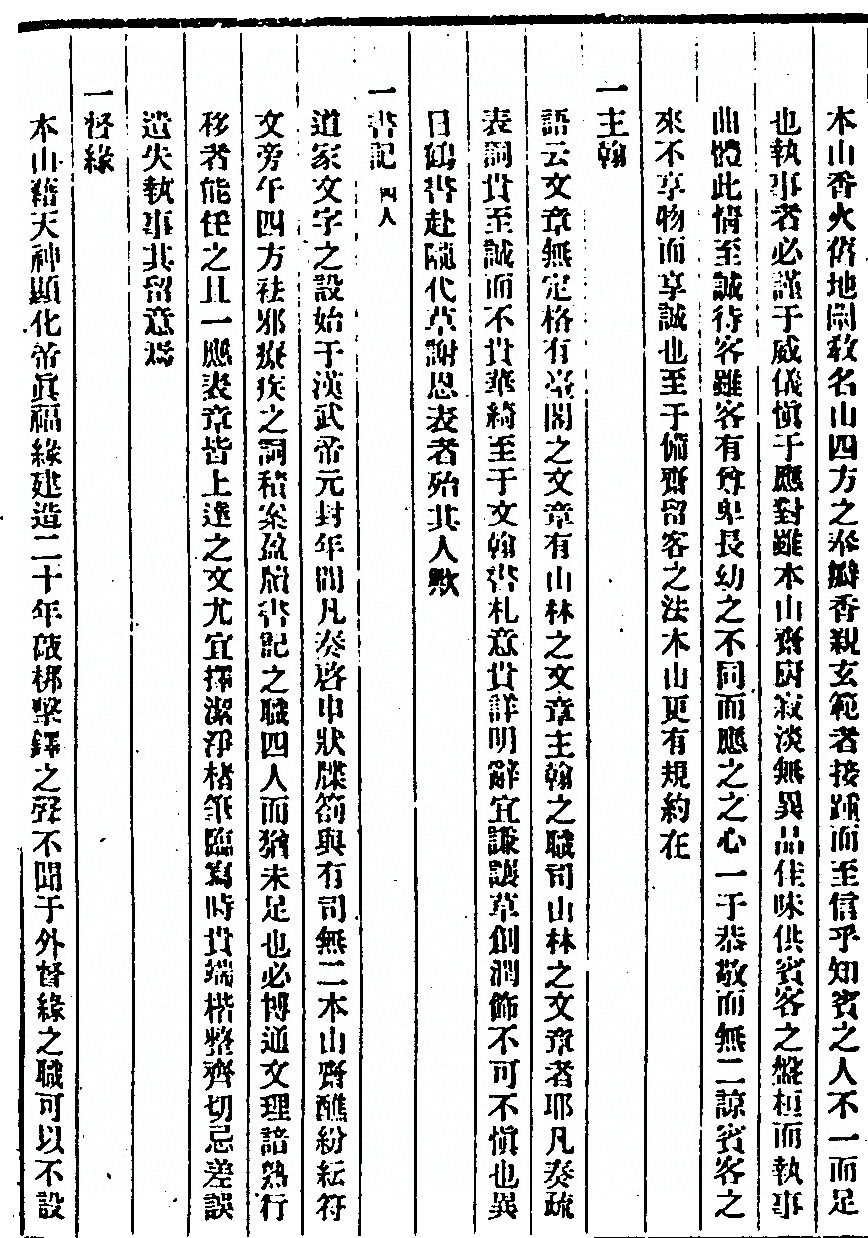 本山香火福地闡教名山四方之奉瓣香親玄範者接踵而至信乎知賓之人不一而足
也執事者必謹于威儀慎于應對雖本山齋廚寂淡無異品佳味供賓客之盤桓而執事
曲體此情至誠待客雖客有尊卑長幼之不同而應之之心一于恭敬而無二諒賓客之
來不享物而享誠也至于備齋留客之法本山更有規約在
一主翰
語云文章無定格有臺閣之文章有山林之文章主翰之職司山林之文章者耶凡奏疏
表詞貴至誠而不貴華綺至于文翰書札意貴詳明辭宜謙謹草創潤飾不可不慎也異
日鶴書赴隴代草謝恩表者殆其人歟
一書記 四人
道家文字之設始于漢武帝元封年間凡奏啓申狀牒劄與有司無二本山齋醮紛紜符
文旁午四方祛邪療疾之詞積案盈牘書記之職四人而猶未足也必博通文理諳熟行
移者能任之且一應表章皆上達之文尤宜擇潔淨楮筆臨寫時貴端楷整齊切忌差誤
遺失執事其留意焉
一督緣
本山藉天神顯化帝真福緣建造二十年敲梆擊鐸之聲不聞于外督緣之職可以不設